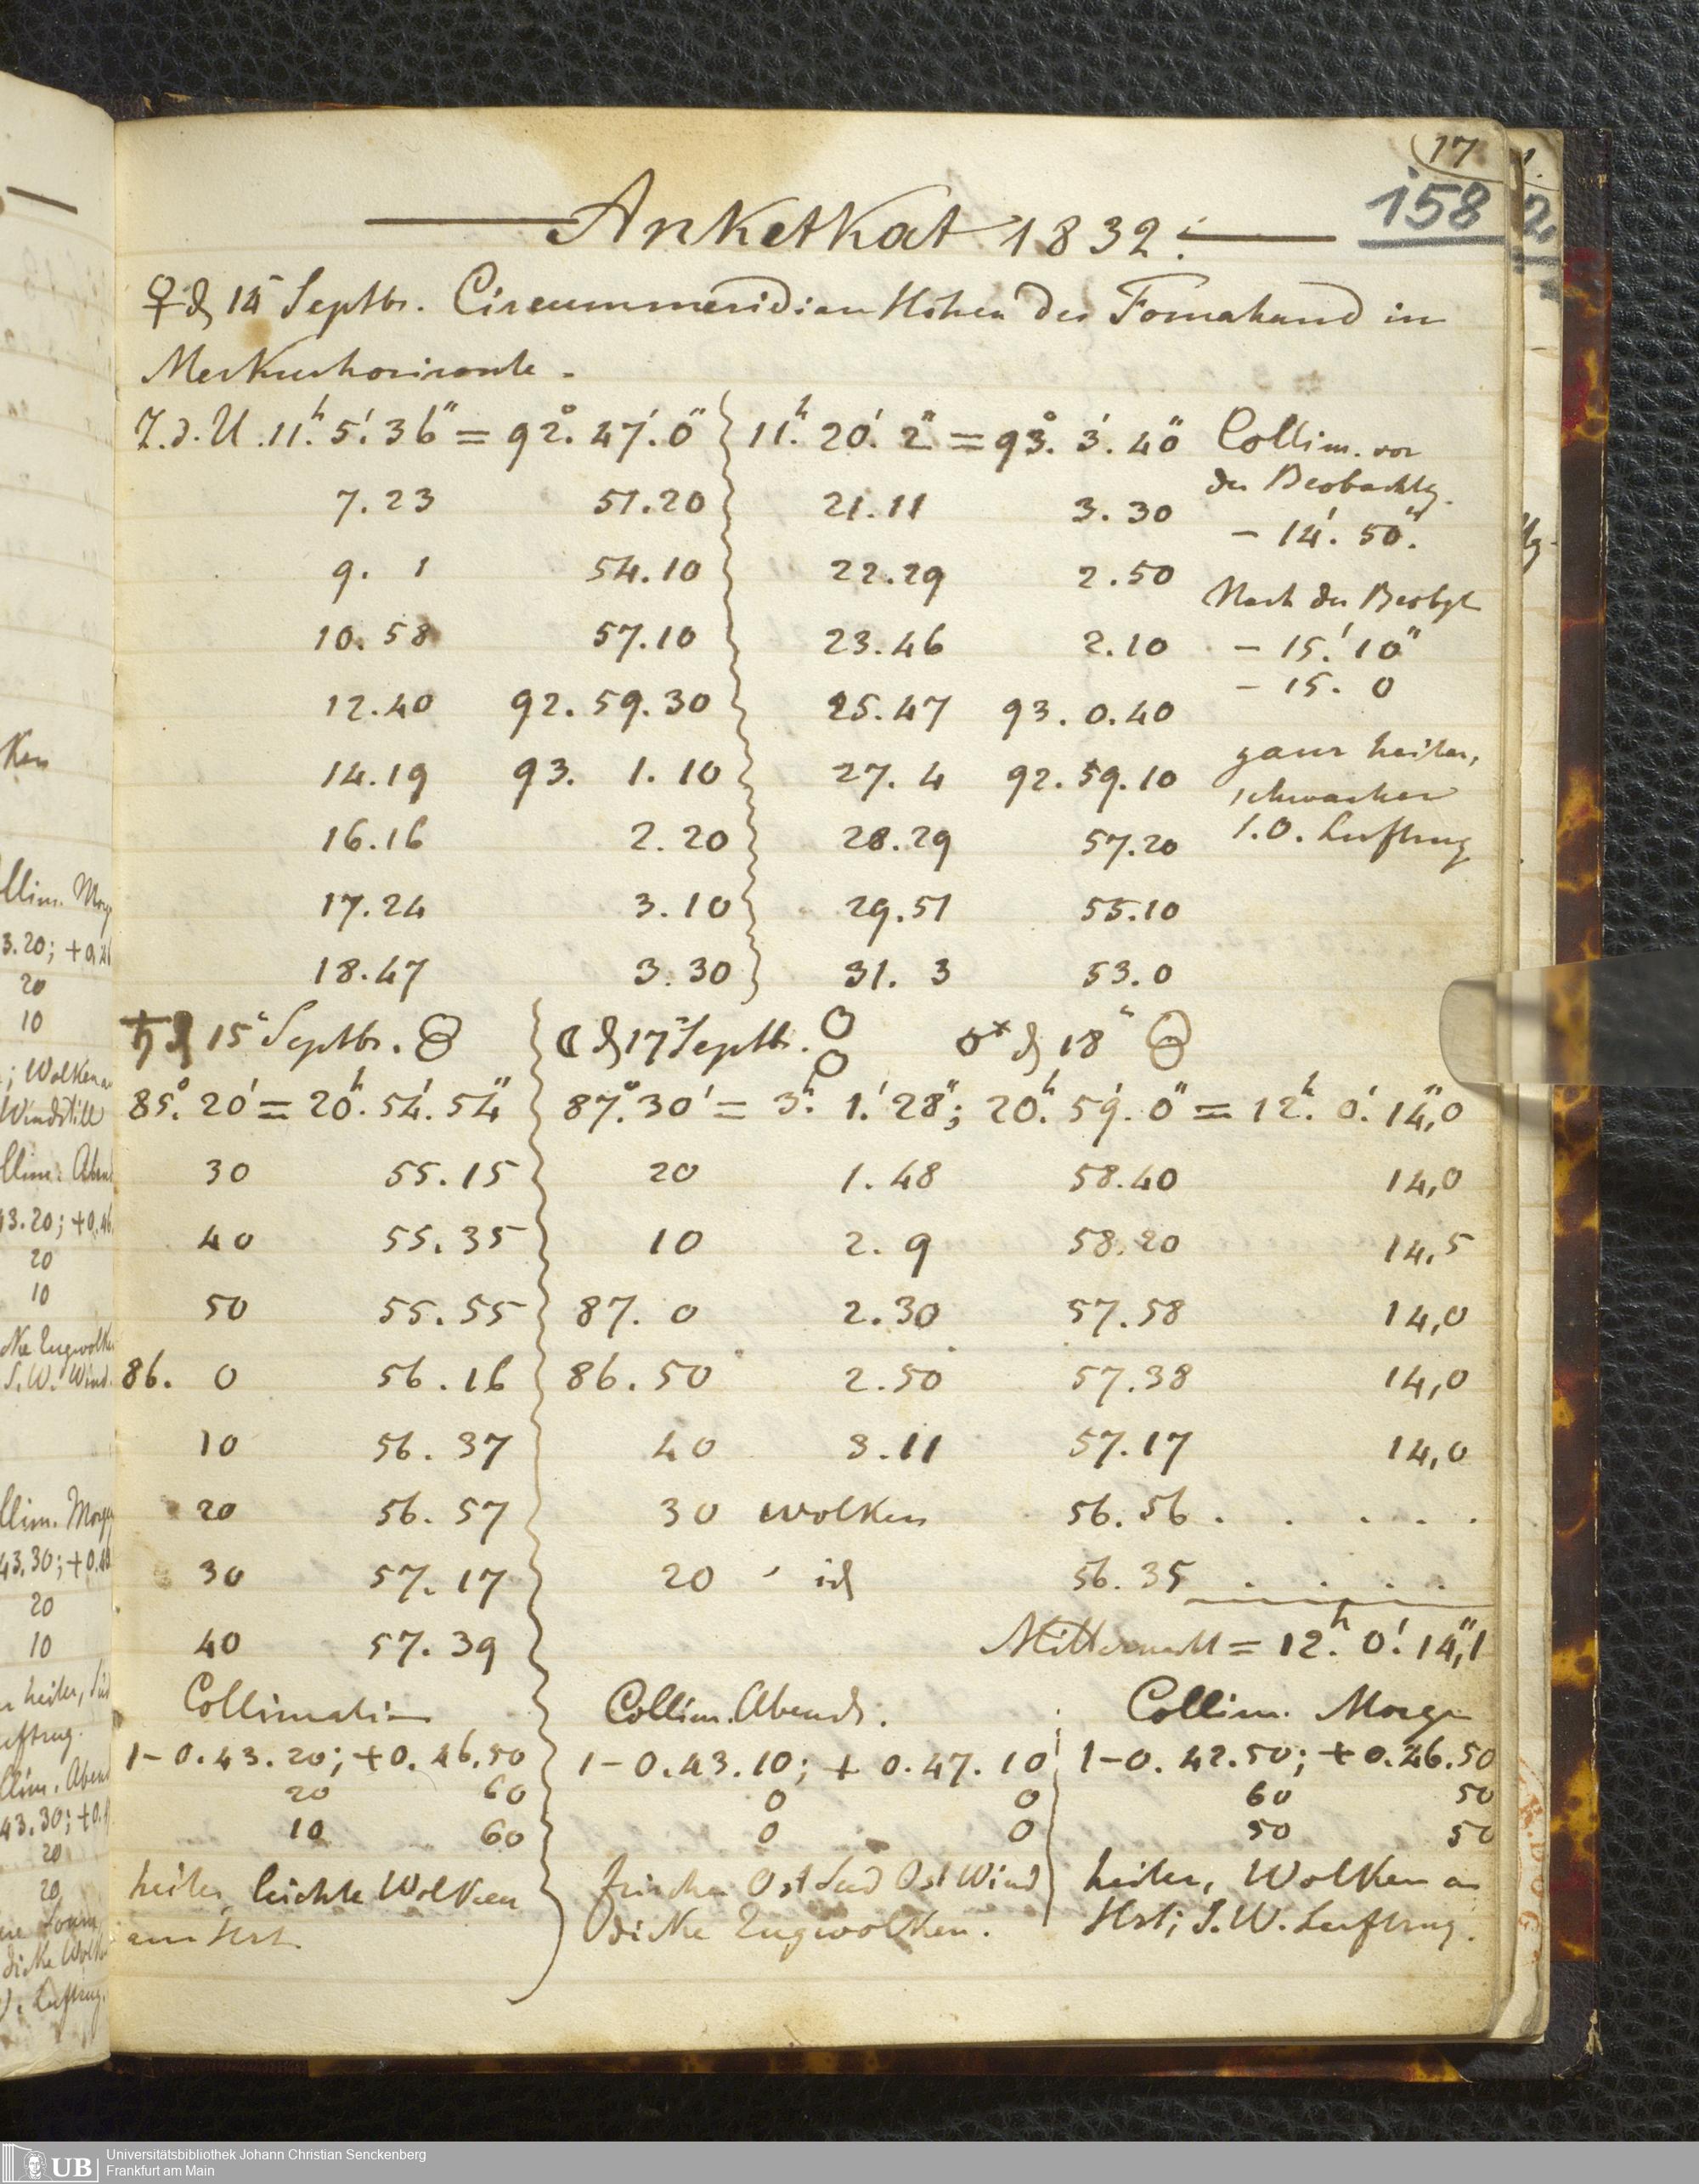 17
158
Anketkat 1832.
♀ d 14 Septbr. Circummeridian Höhen des Fomahand in
Merkurhorizonte.
Z.d.U. 11h. 5'. 36" = 92°. 47'. 0" 11h. 20'. 2" = 93°. 3'. 40" Collim. vor
7. 23 51. 20 21. 11 3. 30 der Beobachtg.
- 14'. 50".
9. 1 54. 10 22. 29 2. 50 Nach der Beobgt
10. 58 57. 10 23. 46 2. 10 - 15'. 10"
- 15. 0
12. 40 92. 59. 30 25. 47 93. 0. 40
14. 19 93. 1. 10 27. 4 92. 59. 10 ganz heiter,
schwacher
16. 16 2. 20 28. 29 57. 20 S.O. Luftzug
17. 24 3. 10 29. 51 55. 10
18. 47 3. 30 31. 3 53. 0
♄ d 15" Septbr. ☾ d 17" Septbr. ♂ d 18"
85°. 20' = 20h. 54'. 54" 87°. 30' = 3h. 1'. 28"; 20h. 59'. 0" = 12h. 0'. 14",0
30 55. 15 20 1. 48 58. 40 14,0
40 55. 35 10 2. 9 58. 20 14,5
50 55. 55 87. 0 2. 30 57. 58 14,0
86. 0 56. 16 86. 50 2. 50 57. 38 14,0
10 56. 37 40 3. 11 57. 17 14,0
20 56. 57 30 Wolken 56. 56 . . . . .
30 57. 17 20 id 56. 35 . . . .
40 57. 39 Mitternacht = 12h. 0'. 14",1
Collimation Collim. Abends. Collim. Morgen
1-0. 43. 20; +0. 46. 50 1-0. 43. 10; + 0. 47. 10 1-0. 42. 50; +0. 46. 50
20 60 0 0 60 50
10 60 0 0 50 50
heiter, leichte Wolken frischer Ost Sud Ost Wind heiter, Wolken am
am Hrzt dicke Zugwolken. Hrzt; S.W. Luftzug.
Universitätsbibliothek Johann Christian Senckenberg
UB Frankfurt am Main